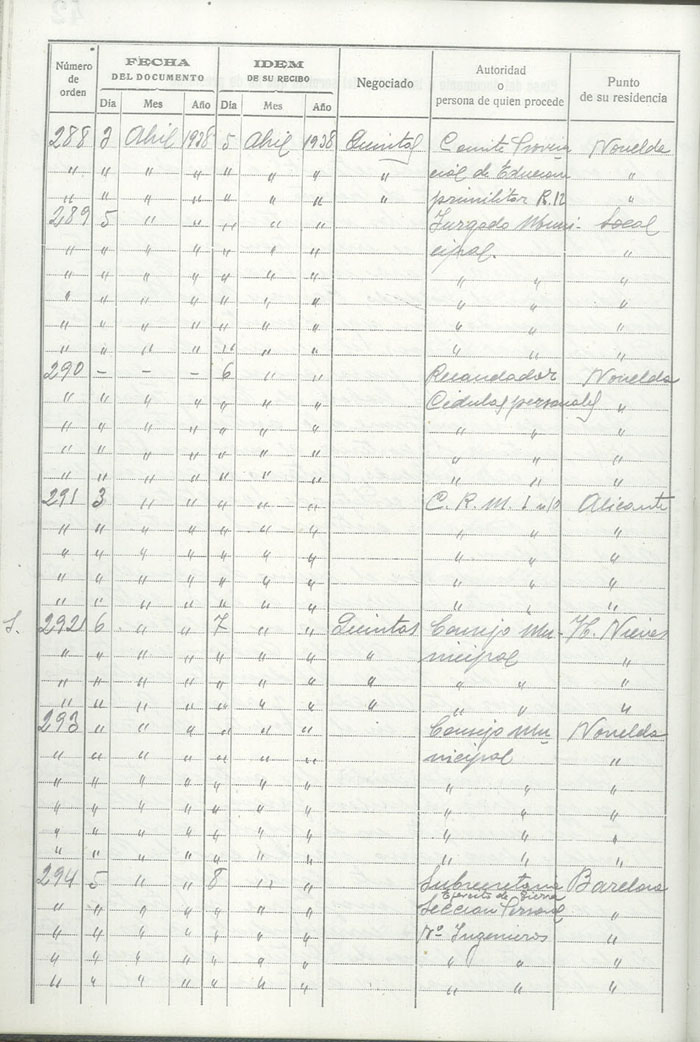 Número de orden | FECHA DEL DOCUMENTO | IDEM DE SU RECIBO | Negociado | Autoridad o persona de quien procede | Punto de su residencia
Día | Mes | Año | Día | Mes | Año
288 3 Abril 1938 5 Abril 1938 Quintas Comite Provin Novelda
" " " " " " " " cial de "
" " " " " " " " primilitar R. 12 "
289 5 " " " " " Juzgado Muni- Local
" " " " " " " cipal. "
" " " " " " " " " "
" " " " " " " " " "
" " " " " " " " " "
" " " " " " " " " "
290 - - - 6 " " Recaudador Novelda
" " " " " " " Cedulas personales "
" " " " " " " " " "
" " " " " " " " " "
" " " " " " " " " "
291 3 " " " " " C. R. M. Alicante
" " " " " " " " " "
" " " " " " " " " "
" " " " " " " " " "
" " " " " " " " " "
292 6 " " 7 " " Quintas Consejo Mu- H. Nieves
" " " " " " " " nicipal "
" " " " " " " " " " "
" " " " " " " " " " "
293 " " " " " " Consejo Mu- Novelda
" " " " " " " nicipal "
" " " " " " " " " "
" " " " " " " " " "
" " " " " " " " " "
" " " " " " " " " "
294 5 " " 8 " " Subsecretaria
Ejercito de Tierra
" " " " " " " Seccion Personal "
" " " " " " " Ingenieros "
" " " " " " " " " "
" " " " " " " " " "